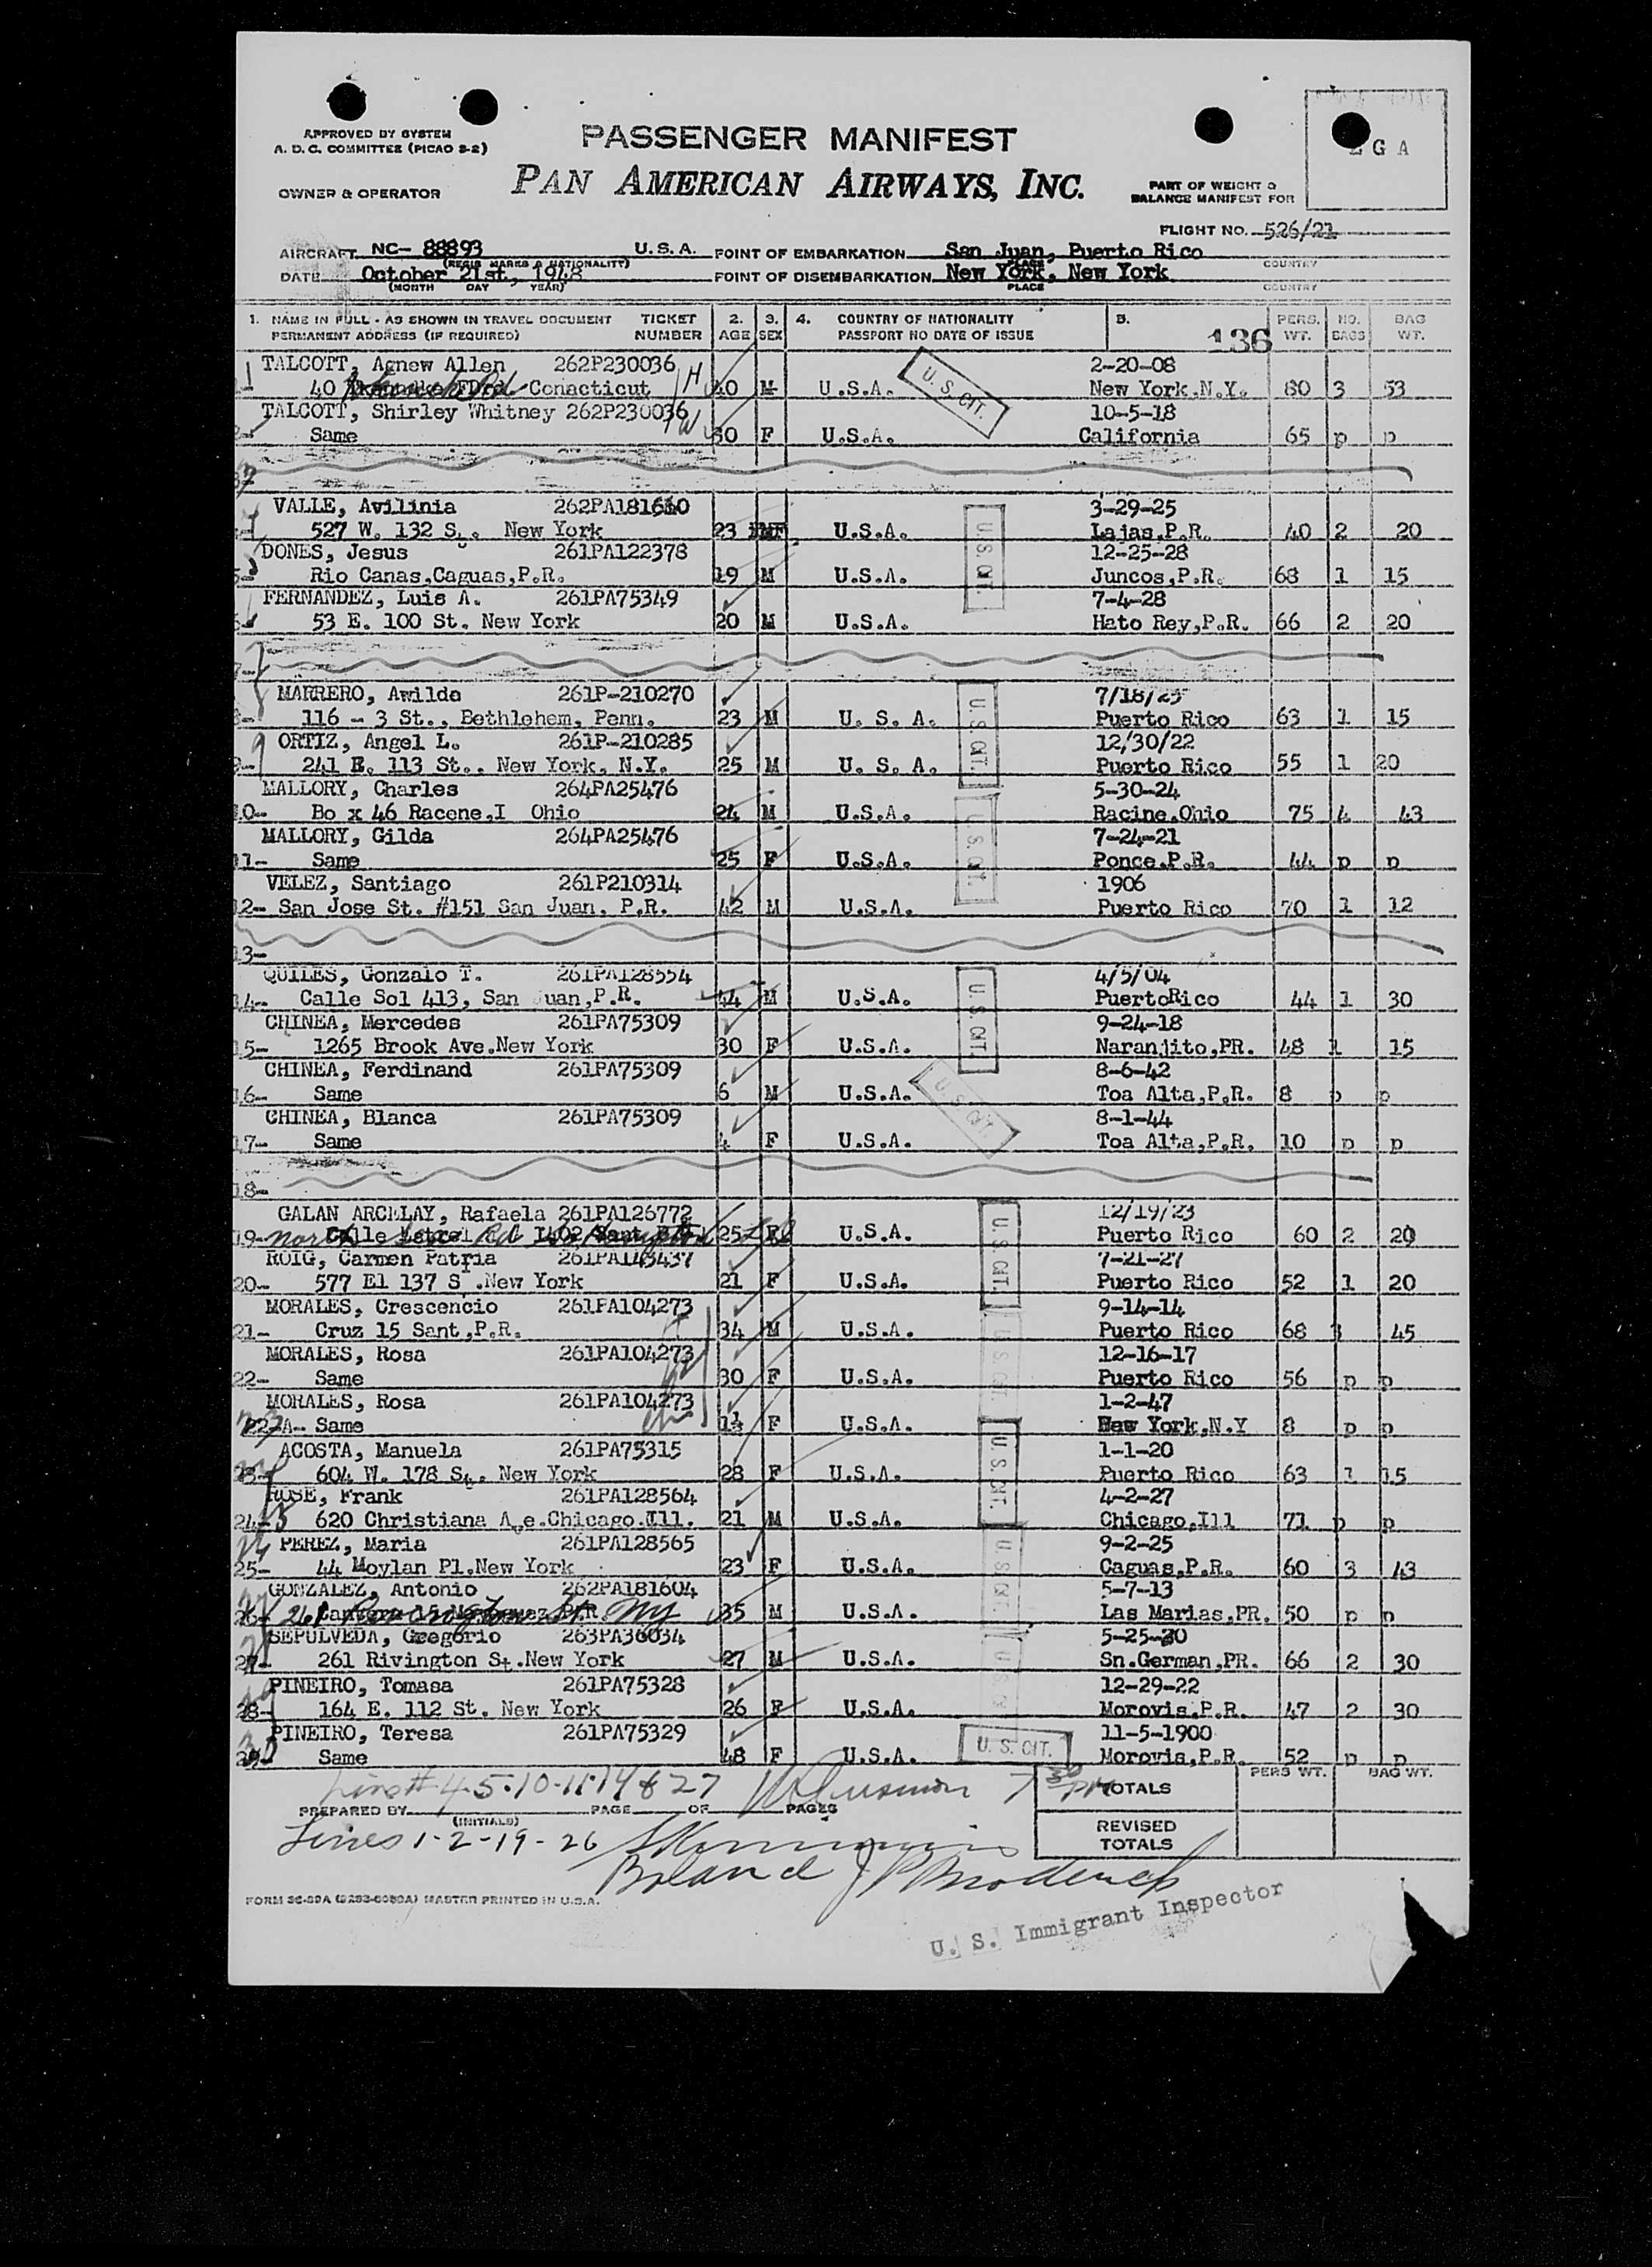 APPROVED BY SYSTEM
A. D. C. COMMITTEE (PICAO S-2)
PASSENGER MANIFEST
G A
OWNER & OPERATOR
PAN AMERICAN AIRWAYS, INC.
PART OF WEIGHT &
BALANCE MANIFEST FOR
FLIGHT NO. 526/21
AIRCRAFT NC- 88893 U.S.A. POINT OF EMBARKATION San Juan, Puerto Rico
(REGIS MARKS & NATIONALITY) PLACE COUNTRY
DATE October 21st., 1948 POINT OF DISEMBARKATION New York, New York
(MONTH DAY YEAR) PLACE COUNTRY
1. NAME IN FULL - AS SHOWN IN TRAVEL DOCUMENT TICKET 2. 3. 4. COUNTRY OF NATIONALITY 5. PERS. NO. BAG
PERMANENT ADDRESS (IF REQUIRED) NUMBER AGE SEX PASSPORT NO DATE OF ISSUE 136 WT. BAGS WT.
1 TALCOTT, Agnew Allen 262P230036 2-20-08
40 Conacticut H 40 M U.S.A. U. S. CIT. New York,N.Y. 80 3 53
TALCOTT, Shirley Whitney 262P230036 10-5-18
Same W 30 F U.S.A. California 65 p p
VALLE, Avilinia 262PA181660 3-29-25
527 W. 132 St. New York 23 F U.S.A. U. S. CIT. Lajas,P.R. 40 2 20
DONES, Jesus 261PA122378 12-25-28
5- Rio Canas,Caguas,P.R. 19 M U.S.A. Juncos,P.R. 68 1 15
FERNANDEZ, Luis A. 261PA75349 7-4-28
53 E. 100 St. New York 20 M U.S.A. Hato Rey,P.R. 66 2 20
7-
MARRERO, Awilda 261P-210270 7/18/25
8- 116 - 3 St., Bethlehem, Penn. 23 M U. S. A. U. S. CIT. Puerto Rico 63 1 15
ORTIZ, Angel L. 261P-210285 12/30/22
9- 241 E. 113 St., New York, N.Y. 25 M U. S. A. Puerto Rico 55 1 20
MALLORY, Charles 264PA25476 5-30-24
10- Bo x 46 Racene,I Ohio 24 M U.S.A. U. S. CIT. Racine,Ohio 75 4 43
MALLORY, Gilda 264PA25476 7-24-21
11- Same 25 F U.S.A. Ponce,P.R. 44 p p
VELEZ, Santiago 261P210314 1906
12- San Jose St. #151 San Juan, P.R. 42 M U.S.A. Puerto Rico 70 1 12
13-
QUILES, Gonzalo T. 261PA128554 4/5/04
14- Calle Sol 413, San Juan,P.R. 44 M U.S.A. U. S. CIT. PuertoRico 44 1 30
CHINEA, Mercedes 261PA75309 9-24-18
15- 1265 Brook Ave.New York 30 F U.S.A. Naranjito,PR. 48 1 15
CHINEA, Ferdinand 261PA75309 8-6-42
16- Same 6 M U.S.A. U. S. CIT. Toa Alta,P.R. 8 p p
CHINEA, Blanca 261PA75309 8-1-44
17- Same 4 F U.S.A. Toa Alta,P.R. 10 p p
18-
GALAN ARCELAY, Rafaela 261PA126772 12/19/23
19- 25 F U.S.A. U. S. CIT. Puerto Rico 60 2 20
ROIG, Carmen Patria 261PA143437 7-21-27
20- 577 El 137 S .New York 21 F U.S.A. Puerto Rico 52 1 20
MORALES, Crescencio 261PA104273 9-14-14
21- Cruz 15 Sant,P.R. 34 M U.S.A. U. S. CIT. Puerto Rico 68 3 45
MORALES, Rosa 261PA104273 12-16-17
22- Same 30 F U.S.A. Puerto Rico 56 p p
MORALES, Rosa 261PA104273 1-2-47
22-A- Same F U.S.A. New York,N.Y 8 p p
ACOSTA, Manuela 261PA75315 1-1-20
23- 604 W. 178 St. New York 28 F U.S.A. U. S. CIT. Puerto Rico 63 1 15
ROSE, Frank 261PA128564 4-2-27
24- 620 Christiana Ave.Chicago.Ill. 21 M U.S.A. Chicago,Ill 71 p p
PEREZ, Maria 261PA128565 9-2-25
25- 44 Moylan Pl.New York 23 F U.S.A. U. S. CIT. Caguas,P.R. 60 3 43
GONZALEZ, Antonio 262PA181604 5-7-13
26- 261 NY 35 M U.S.A. Las Marias,PR. 50 p p
SEPULVEDA, Gregorio 263PA36034 5-25-20
27- 261 Rivington St.New York 27 M U.S.A. U. S. Sn.German,PR. 66 2 30
PINEIRO, Tomasa 261PA75328 12-29-22
28- 164 E. 112 St. New York 26 F U.S.A. Morovis,P.R. 47 2 30
PINEIRO, Teresa 261PA75329 11-5-1900
29- Same 48 F U.S.A. U. S. CIT. Morovis,P.R. 52 p p
PERS WT. BAG WT.
Line# 4-5-10-11-14 & 27 7 30 PM TOTALS
PREPARED BY PAGE OF PAGES
(INITIALS)
Lines 1-2-19-26
REVISED
TOTALS
Boland J P Broderick
FORM SC-89A MASTER PRINTED IN U.S.A.
U. S. Immigrant Inspector